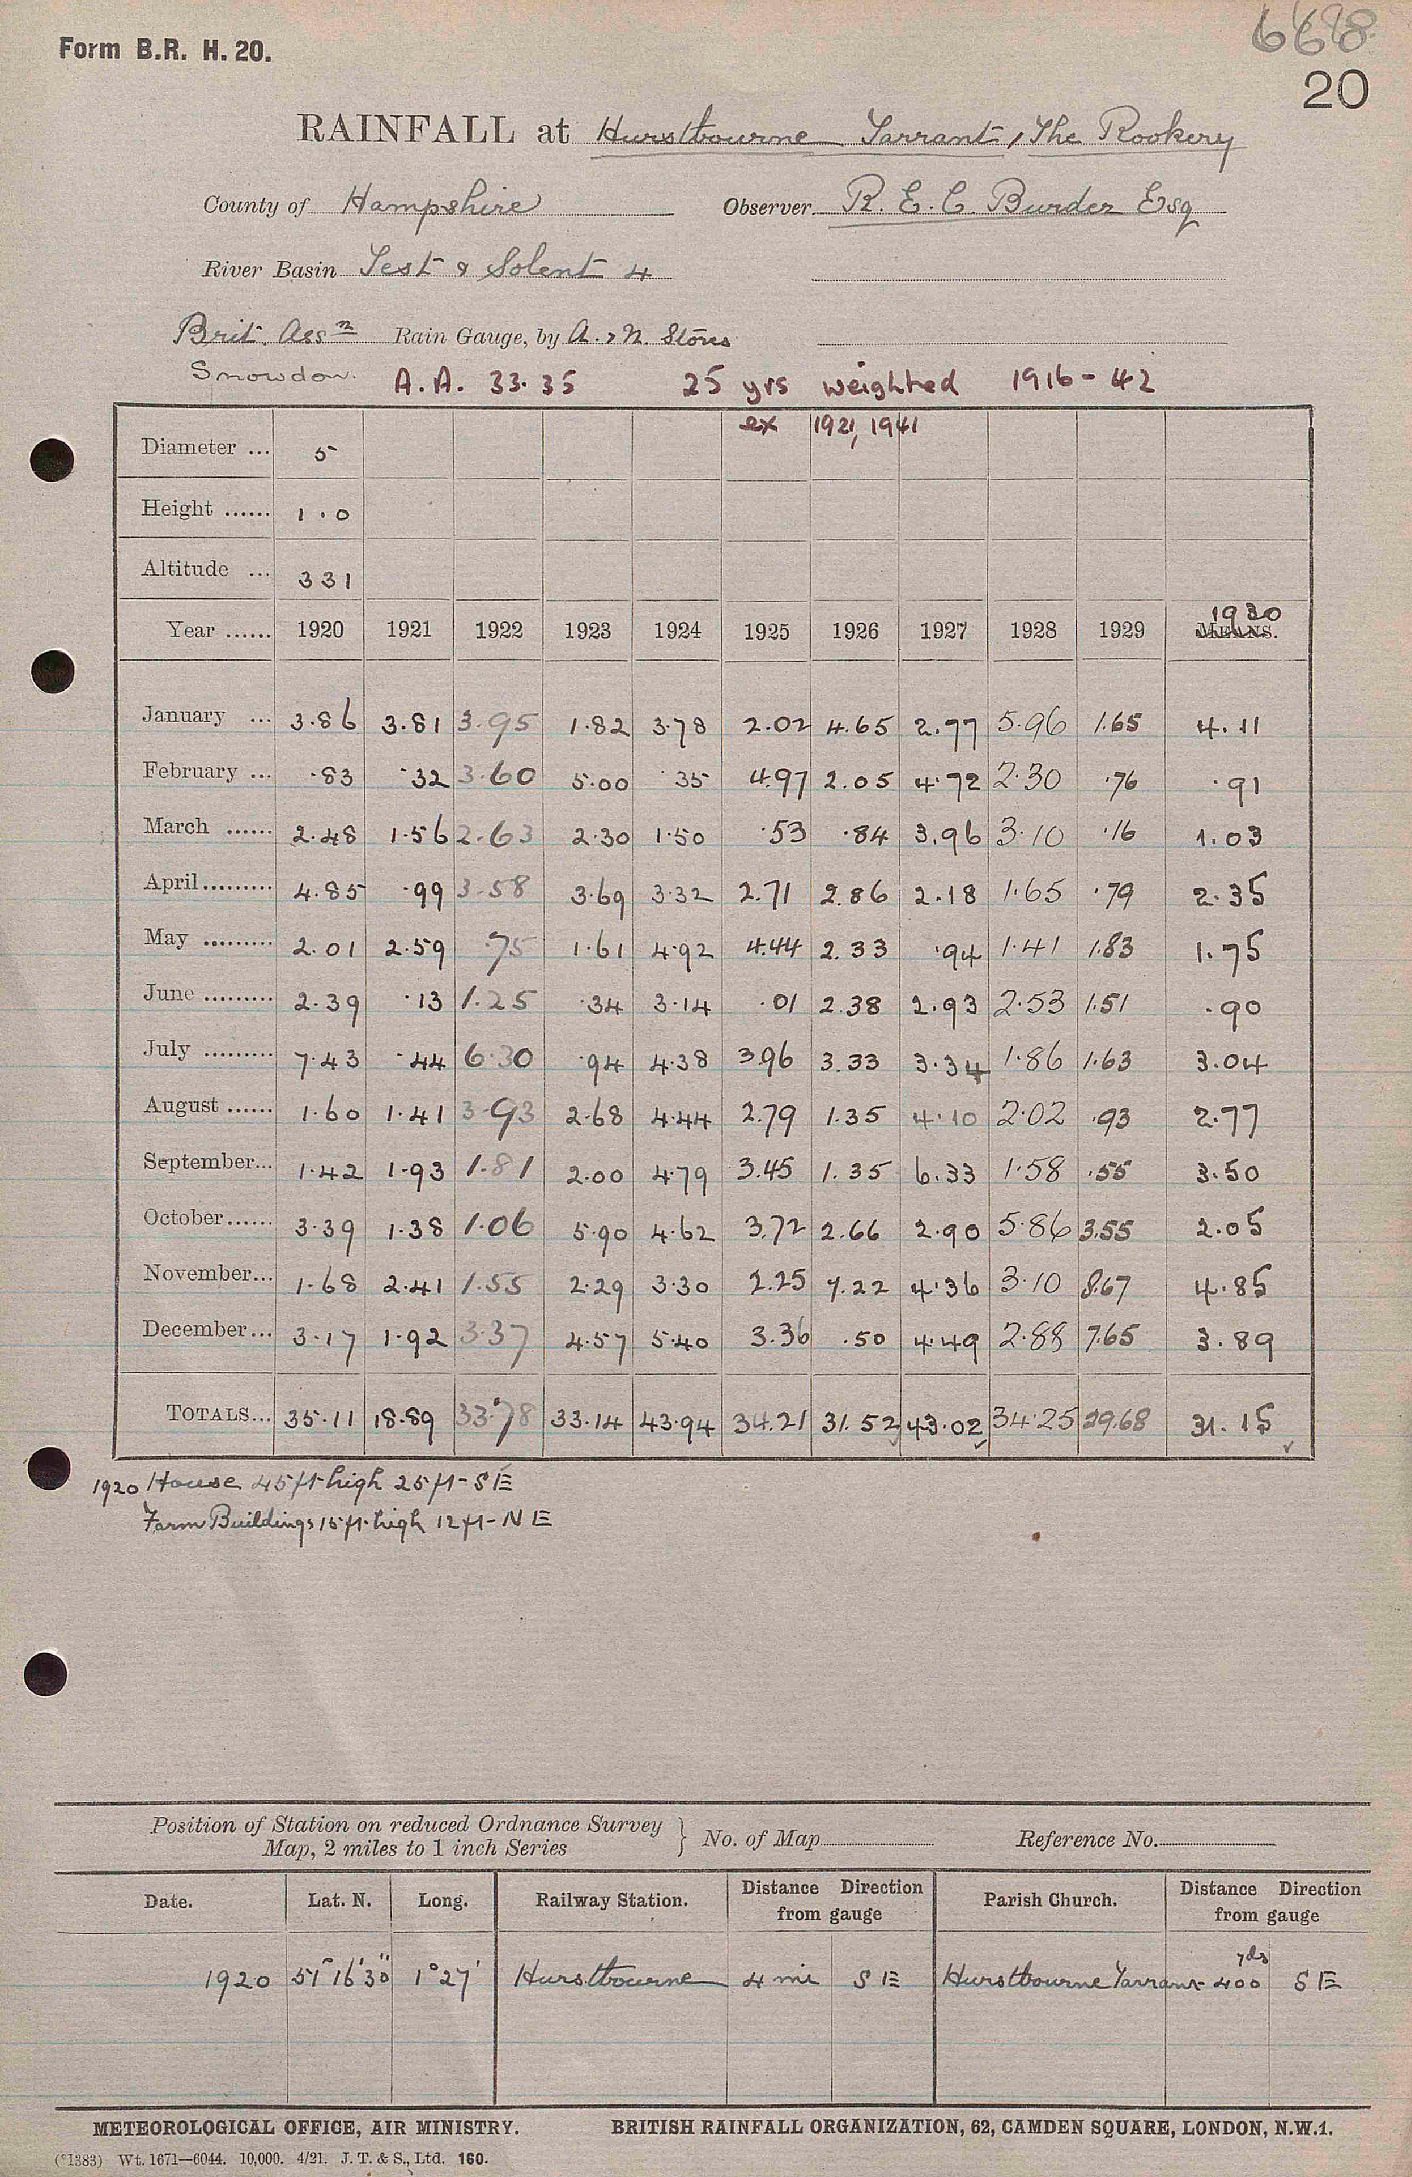 Form B.R. H. 20.
668
20
RAINFALL at Hurstbourne Tarrant, The Rookery
County of Hampshire Observer R. E. C. Burder Esq
River Basin Test & Solent 4
Brit. Assn Rain Gauge, by A. & N. Stores
Snowdon. A.A. 33.35 25 yrs weighted 1916-42
ex 1921, 1941
Diameter ... 5
Height ...... 1.0
Altitude ... 331
1930
Year ...... 1920 1921 1922 1923 1924 1925 1926 1927 1928 1929 MEANS.
January ... 3.86 3.81 3.95 1.82 3.78 2.02 4.65 2.77 5.96 1.65 4.11
February ... .83 .32 3.60 5.00 .35 4.97 2.05 4.72 2.30 .76 .91
March ...... 2.48 1.56 2.63 2.30 1.50 .53 .84 3.96 3.10 .16 1.03
April ......... 4.85 .99 3.58 3.69 3.32 2.71 2.86 2.18 1.65 .79 2.35
May ......... 2.01 2.59 .75 1.61 4.92 4.44 2.33 .94 1.41 1.83 1.75
June ......... 2.39 .13 1.25 .34 3.14 .01 2.38 2.93 2.53 1.51 .90
July ......... 7.43 .44 6.30 .94 4.38 3.96 3.33 3.34 1.86 1.63 3.04
August ...... 1.60 1.41 3.93 2.68 4.44 2.79 1.35 4.10 2.02 .93 2.77
September... 1.42 1.93 1.81 2.00 4.79 3.45 1.35 6.33 1.58 .55 3.50
October...... 3.39 1.38 1.06 5.90 4.62 3.72 2.66 2.90 5.86 3.55 2.05
November... 1.68 2.41 1.55 2.29 3.30 2.25 7.22 4.36 3.10 8.67 4.85
December... 3.17 1.92 3.37 4.57 5.40 3.36 .50 4.49 2.88 7.65 3.89
TOTALS... 35.11 18.89 33.78 33.14 43.94 34.21 31.52 43.02 34.25 29.68 31.15
1920 House 45 ft high 25 ft - SE
Farm Buildings 15 ft high 12 ft - NE
Position of Station on reduced Ordnance Survey
Map, 2 miles to 1 inch Series } No. of Map Reference No.
Date. Lat. N. Long. Railway Station. Distance Direction from gauge Parish Church. Distance Direction from gauge
1920 51° 16' 30" 1° 27' Hurstbourne 4 mi SE Hurstbourne Tarrant 400 yds SE
METEOROLOGICAL OFFICE, AIR MINISTRY. BRITISH RAINFALL ORGANIZATION, 62, CAMDEN SQUARE, LONDON, N.W.1.
(*1383) Wt. 1671—6044. 10,000. 4/21. J. T. & S., Ltd. 160.